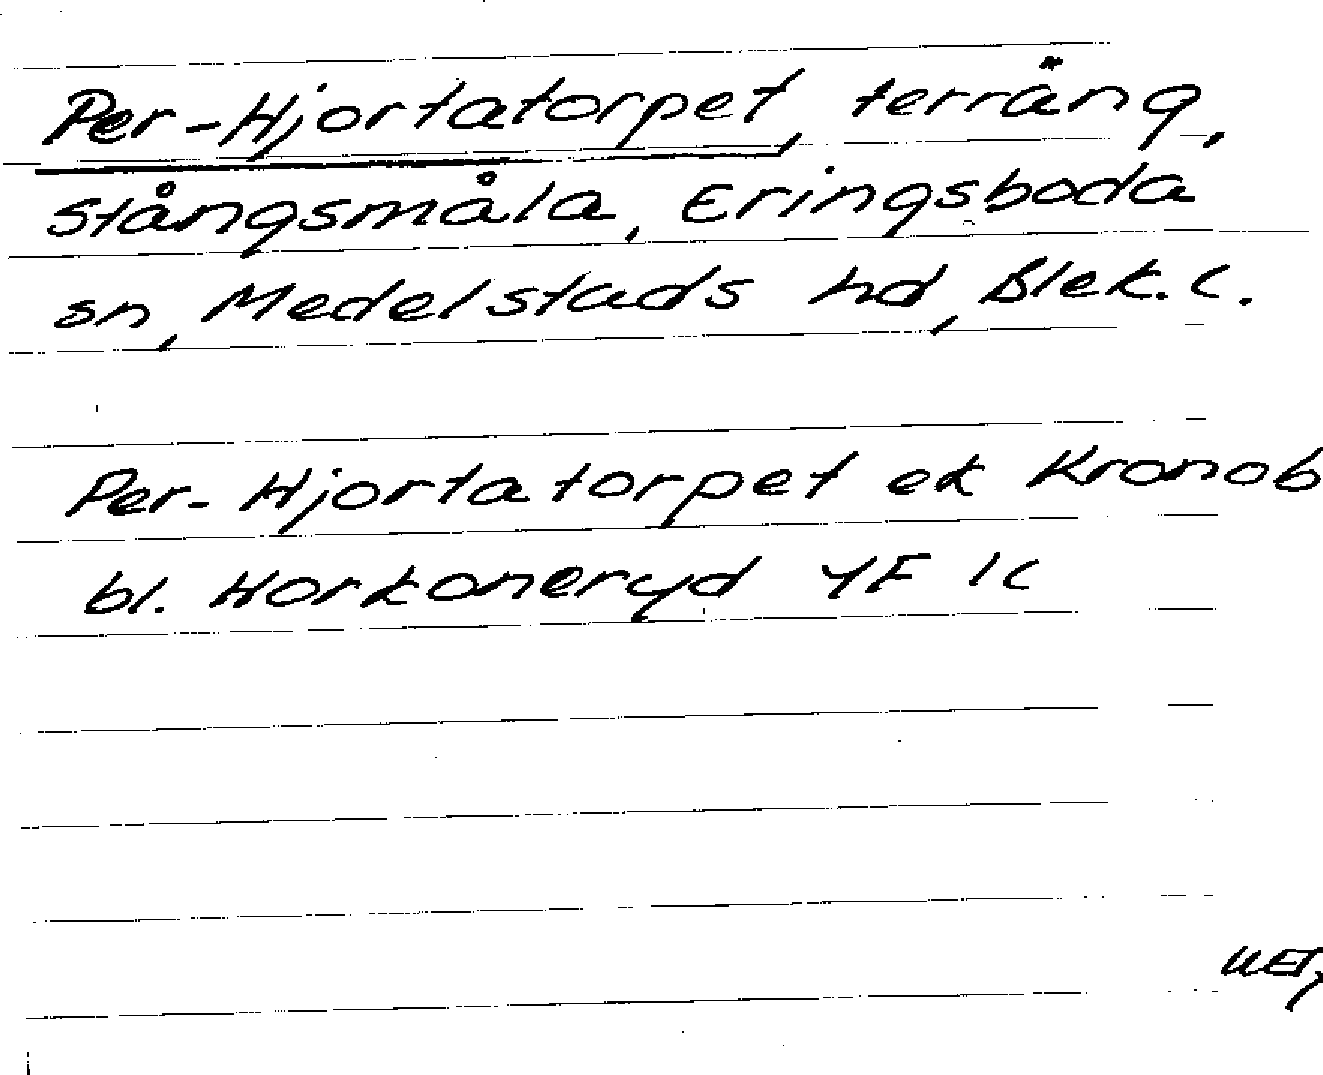 Per-Hjortatorpet, terräng,
Stångsmåla, Eringsboda
sn, Medelstads hd, Blek. l.
Per-Hjortatorpet ek Kronob
bl. Horkoneryd 4F 1c